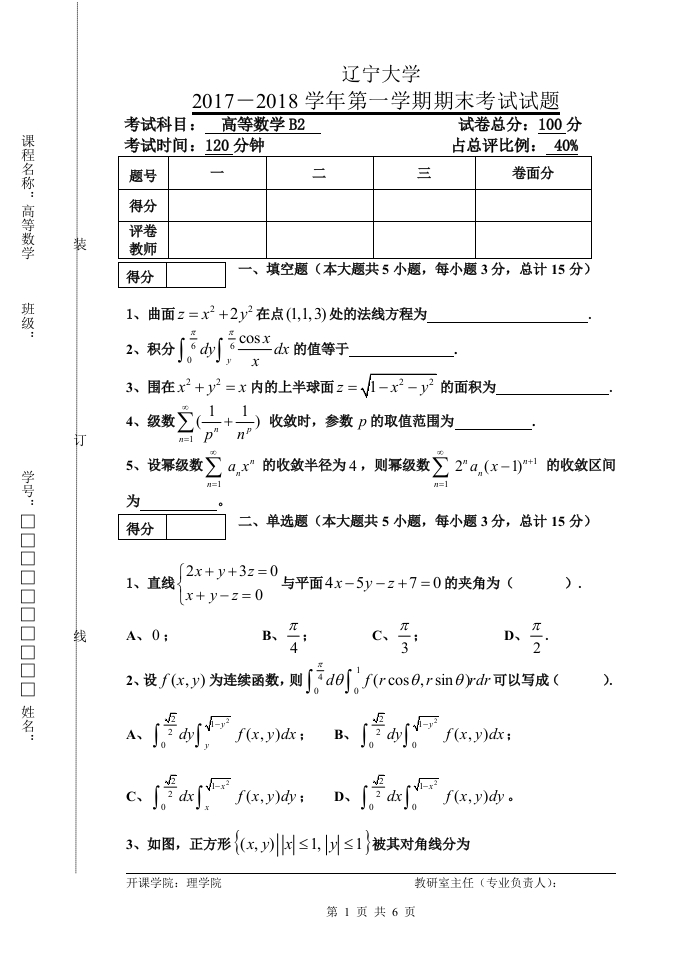 辽宁大学
2017－2018 学年第一学期期末考试试题
考试科目： 高等数学 B2 试卷总分：100 分
考试时间：120 分钟 占总评比例： 40%
题号 一 二 三 卷面分
得分
评卷
教师
得分
一、填空题（本大题共 5 小题，每小题 3 分，总计 15 分）
1、曲面 z = x² + 2y² 在点 (1,1,3) 处的法线方程为 .
2、积分 ∫₀^{π/6} dy ∫_y^{π/6} (cos x / x) dx 的值等于 .
3、围在 x² + y² = x 内的上半球面 z = √(1 − x² − y²) 的面积为 .
4、级数 ∑_{n=1}^{∞} (1/pⁿ + 1/n^p) 收敛时，参数 p 的取值范围为 .
5、设幂级数 ∑_{n=1}^{∞} aₙxⁿ 的收敛半径为 4 ，则幂级数 ∑_{n=1}^{∞} 2ⁿaₙ(x − 1)^{n+1} 的收敛区间
为 。
得分
二、单选题（本大题共 5 小题，每小题 3 分，总计 15 分）
1、直线 { 2x + y + 3z = 0
x + y − z = 0 与平面 4x − 5y − z + 7 = 0 的夹角为（ ）.
A、0； B、π/4； C、π/3； D、π/2.
2、设 f(x, y) 为连续函数，则 ∫₀^{π/4} dθ ∫₀^1 f(r cos θ, r sin θ)rdr 可以写成（ ）.
A、∫₀^{√2/2} dy ∫_y^{√(1−y²)} f(x, y)dx； B、∫₀^{√2/2} dy ∫₀^{√(1−y²)} f(x, y)dx；
C、∫₀^{√2/2} dx ∫_x^{√(1−x²)} f(x, y)dy； D、∫₀^{√2/2} dx ∫₀^{√(1−x²)} f(x, y)dy。
3、如图，正方形 {(x, y)| |x| ≤ 1, |y| ≤ 1} 被其对角线分为
开课学院：理学院 教研室主任（专业负责人）：
第 1 页 共 6 页
课程名称：高等数学
班级：
学号：□□□□□□□□□□
姓名：
装
订
线